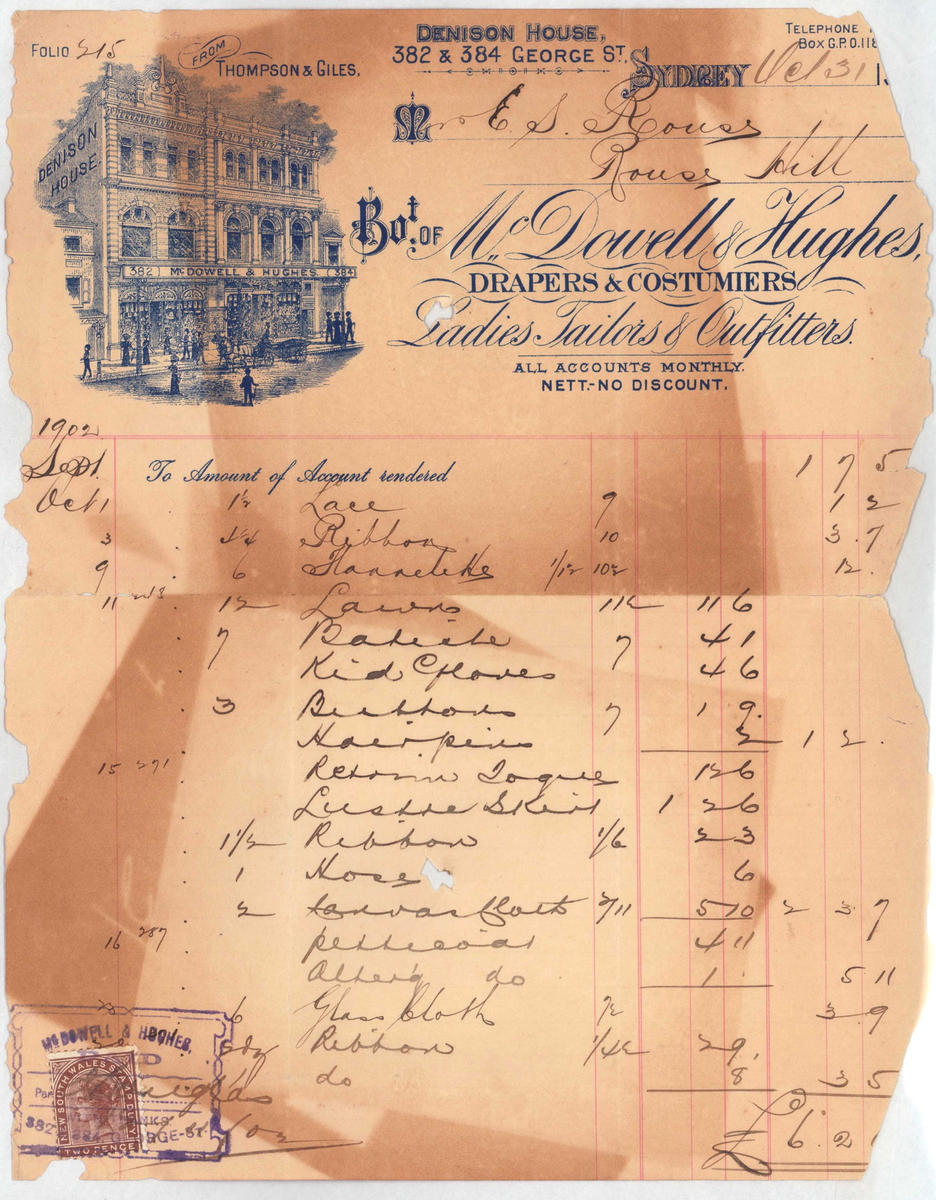 Folio 215
FROM
THOMPSON & GILES,
DENISON HOUSE,
382 & 384 GEORGE ST.,
TELEPHONE
BOX G.P.O. 118
SYDNEY Oct 31 1
M rs E. S. Rouse
Rouse Hill
DENISON HOUSE.
382 McDOWELL & HUGHES 384
Bot. OF McDowell & Hughes,
DRAPERS & COSTUMIERS
Ladies Tailors & Outfitters.
ALL ACCOUNTS MONTHLY.
NETT.-NO DISCOUNT.
1902
Sept. To Amount of Account rendered 1 7 5
Oct 1 1½ Lace 9 1 2
3 Ribbon 10 3 . 7
9 6 Flannelette 10½
11 12 Lawn 11½ 11 6
7 Batiste 7 4 1
Kid Gloves 4 6
3 Buttons 7 1 9
Hairpins 2 1 2
15 291 Retrim Toque 12 6
Lustre Skirt 1 2 6
1½ Ribbon 1/6 2 3
1 Hose 6
2 Canvas Cloth 2/11 5 10 2 3 7
16 287 petticoat 4 11
Alterg do 1 . 5 11
6 Glass Cloth 3 . 9
Ribbon 2 9
do 8 3 5
£ 6 . 2
McDOWELL & HUGHES,
382
GEORGE-ST.
NEW SOUTH WALES STAMP DUTY
TWO PENCE